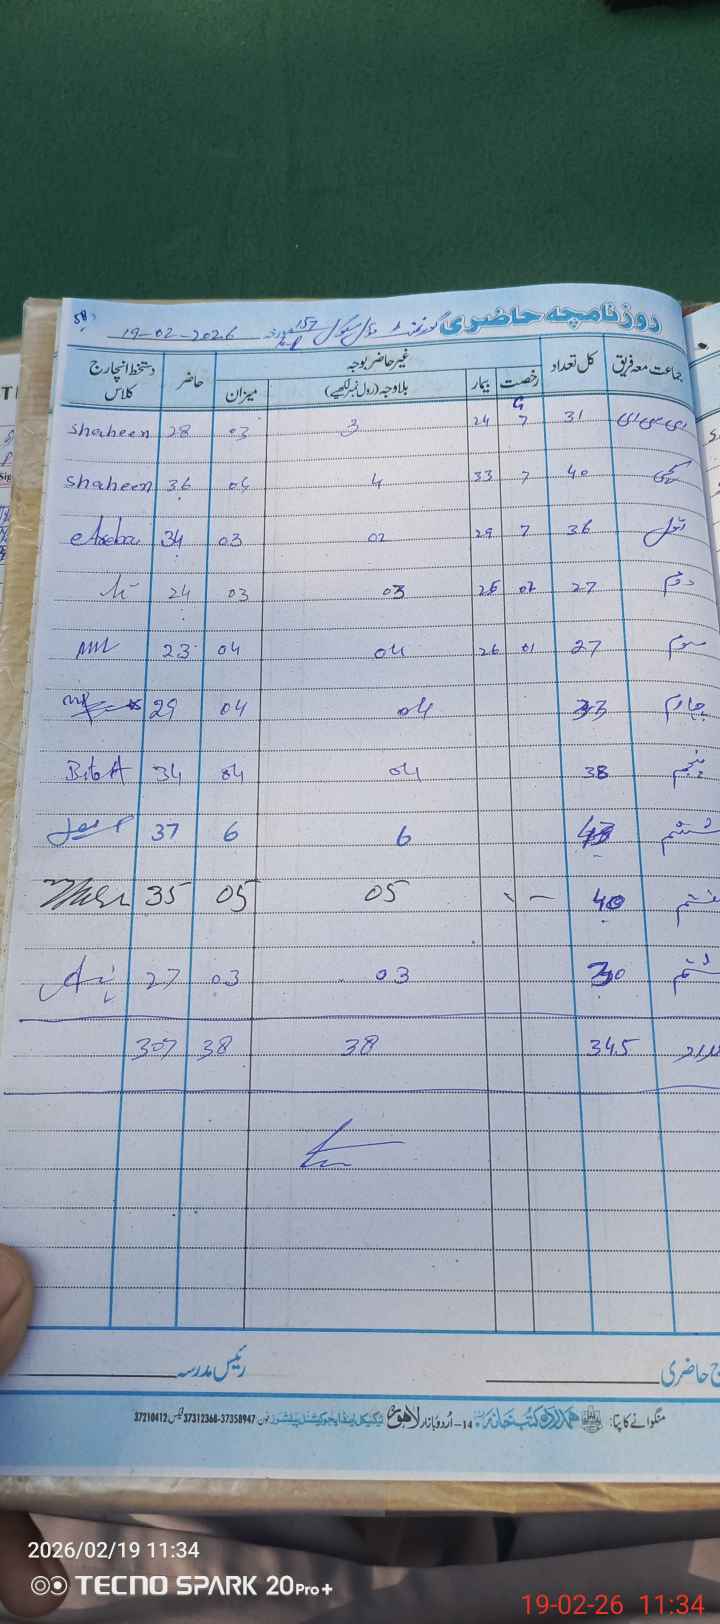 روزنامچہ حاضری گورنمنٹ مڈل سکول 157 19-02-2026
58
جماعت معہ فریق کل تعداد غیر حاضر بوجہ حاضر دستخط انچارج کلاس
رخصت بیمار بلاوجہ (رول نمبر لکھیے) میزان
ای سی سی ای 31 7 24 3 03 28 Shaheen
کچی 40 7 33 4 04 36 Shaheen
اول 36 7 29 02 03 34
دوم 27 02 25 03 03 24
سوم 27 01 26 04 04 23
چہارم 33 04 04 29
پنجم 38 04 04 34
ششم 43 6 6 37
ہفتم 40 - 05 05 35
ہشتم 30 03 03 27
345 38 38 307
ج حاضری رئیس مدرسہ
منگوانے کا پتا: ہمدرد کتب خانہ 14-اردو بازار لاہور ٹیکنیکل اینڈ ایجوکیشنل پبلشرز فون: 37358947-37312368 فیکس: 37210412
2026/02/19 11:34
TECNO SPARK 20Pro+
19-02-26 11:34